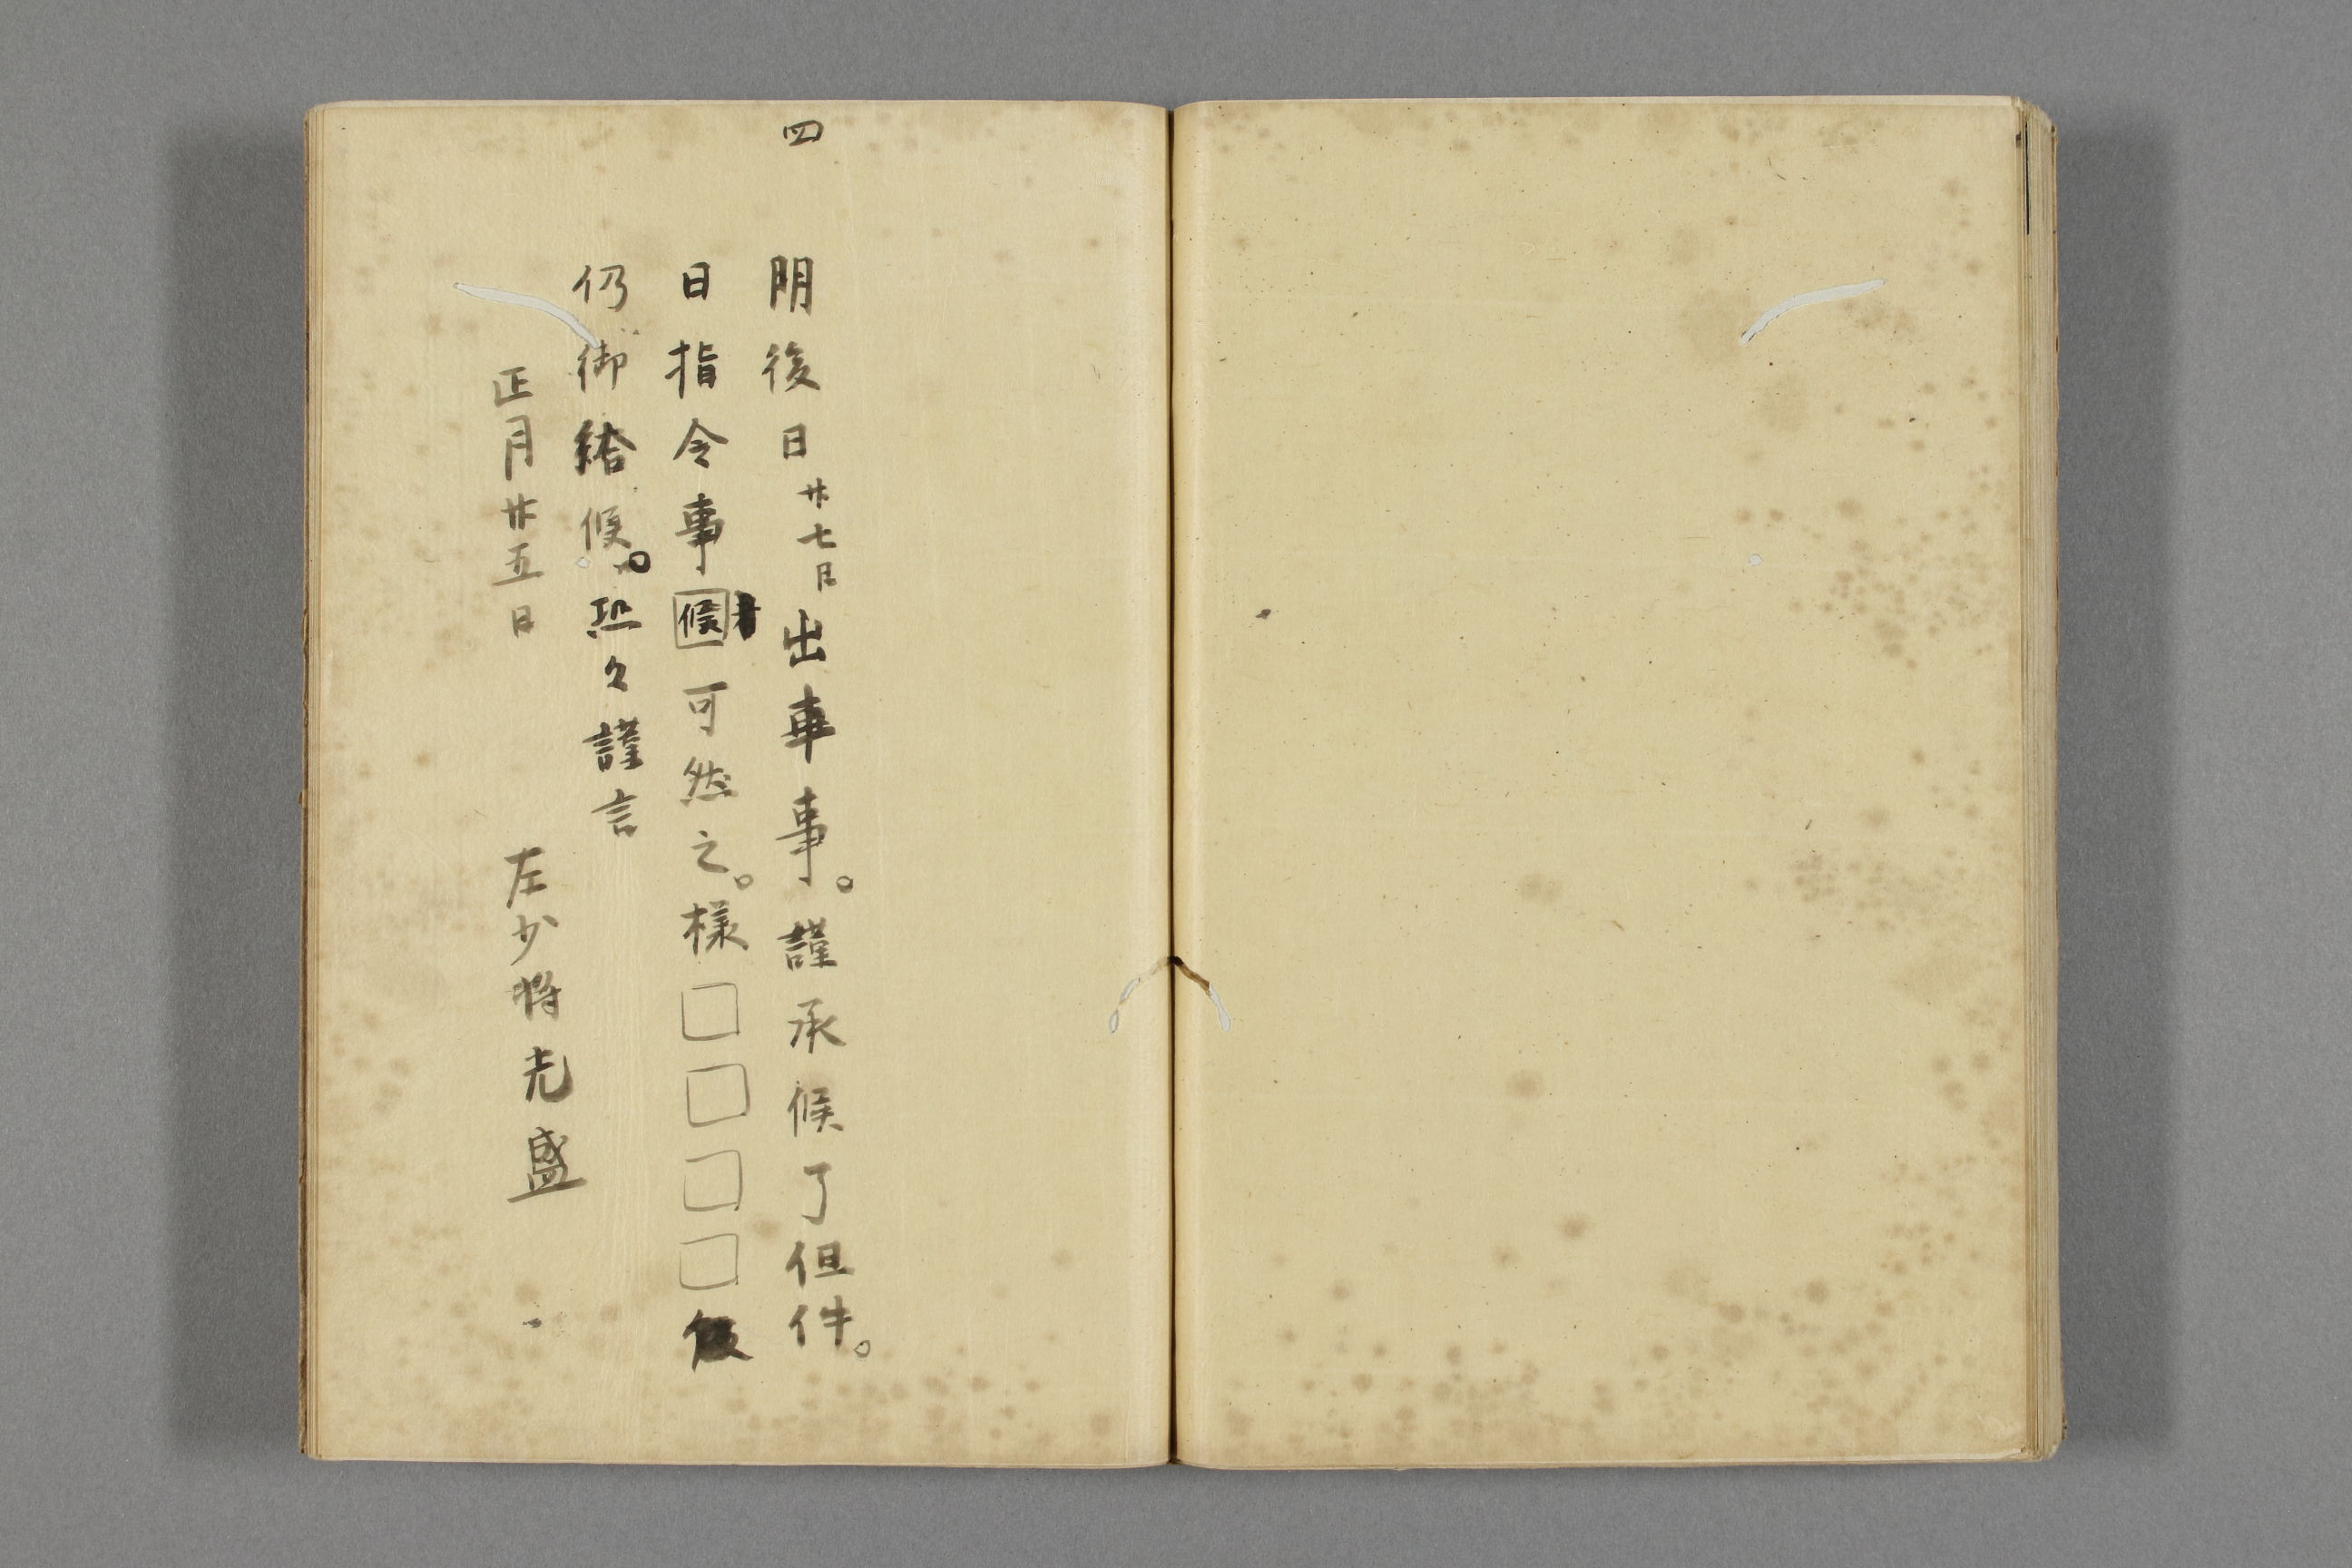 四
明後日廿七日出車事。謹承候了但件。
日指令事候可然之。様□□□□
仍御給候。恐々謹言
正月廿五日　左少将光盛